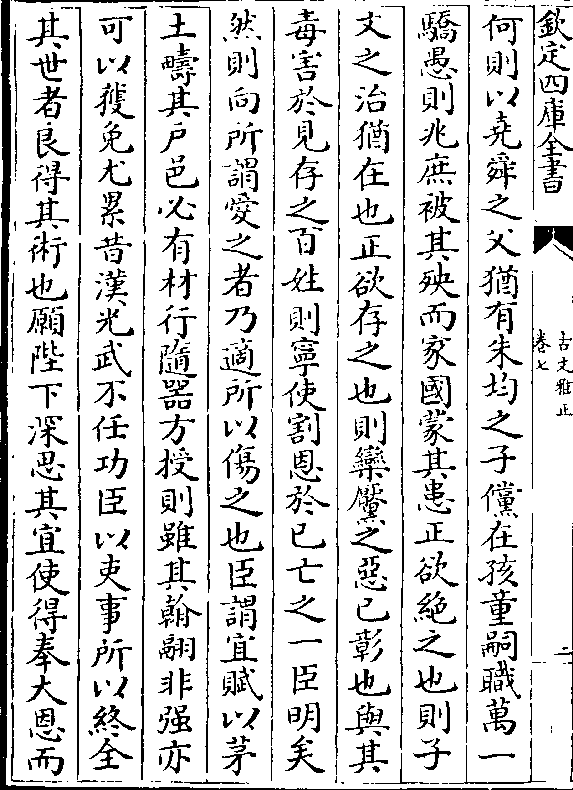 欽定四庫全書
古文雅正
卷七
二
何則以堯舜之父猶有朱均之子儻在孩童嗣職萬一
驕愚則兆庶被其殃而家國蒙其患正欲絶之也則子
文之治猶在也正欲存之也則欒黶之惡已彰也與其
毒害於見存之百姓則寧使割恩於已亡之一臣明矣
然則向所謂愛之者乃適所以傷之也臣謂宜賦以茅
土疇其户邑必有材行隨器方授則雖其翰翮非强亦
可以獲免尤累昔漢光武不任功臣以吏事所以終全
其世者良得其術也願陛下深思其宜使得奉大恩而